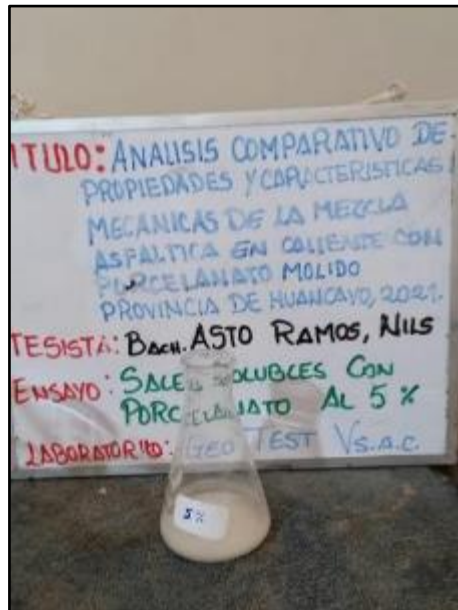 ITULO: ANALISIS COMPARATIVO DE
PROPIEDADES Y CARACTERISTICAS
MECANICAS DE LA MEZCLA
ASFALTICA EN CALIENTE CON
PORCELANATO MOLIDO
PROVINCIA DE HUANCAYO, 2021.
TESISTA: BACH. ASTO RAMOS, NILS
ENSAYO: SALES SOLUBLES CON
PORCELANATO AL 5 %
LABORATORIO: GEO TEST V S.A.C.
5%